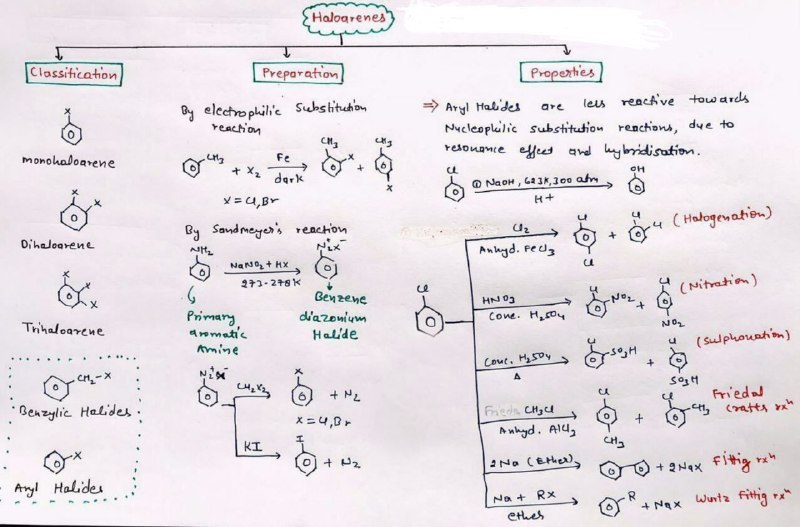 Haloarenes
Classification
X
monohaloarene
X
X
Dihaloarene
X
X
X
Trihaloarene
CH2-X
Benzylic Halides
X
Aryl Halides
Preparation
By electrophilic Substitution
reaction
CH3 + X2 Fe CH3 X + CH3
dark X
X = Cl, Br
By Sandmeyer's reaction
NH2 NaNO2 + HX N2+X-
273-278K
Primary
aromatic
Amine
Benzene
diazonium
Halide
N2+X- Cu2X2 X + N2
X = Cl, Br
KI I + N2
Properties
⇒ Aryl Halides are less reactive towards
Nucleophilic substitution reactions, due to
resonance effect and hybridisation.
Cl ① NaOH, 623K, 300 atm OH
H+
Cl
Cl2 Cl + Cl Cl (Halogenation)
Anhyd. FeCl3 Cl
HNO3 Cl NO2 + Cl (Nitration)
Conc. H2SO4 NO2
Conc. H2SO4 Cl SO3H + Cl (Sulphonation)
Δ SO3H
CH3Cl Cl + Cl CH3 Friedal
Anhyd. AlCl3 CH3 Crafts rxn
2Na (Ether) + 2NaX Fittig rxn
Na + RX R + NaX Wurtz Fittig rxn
ether